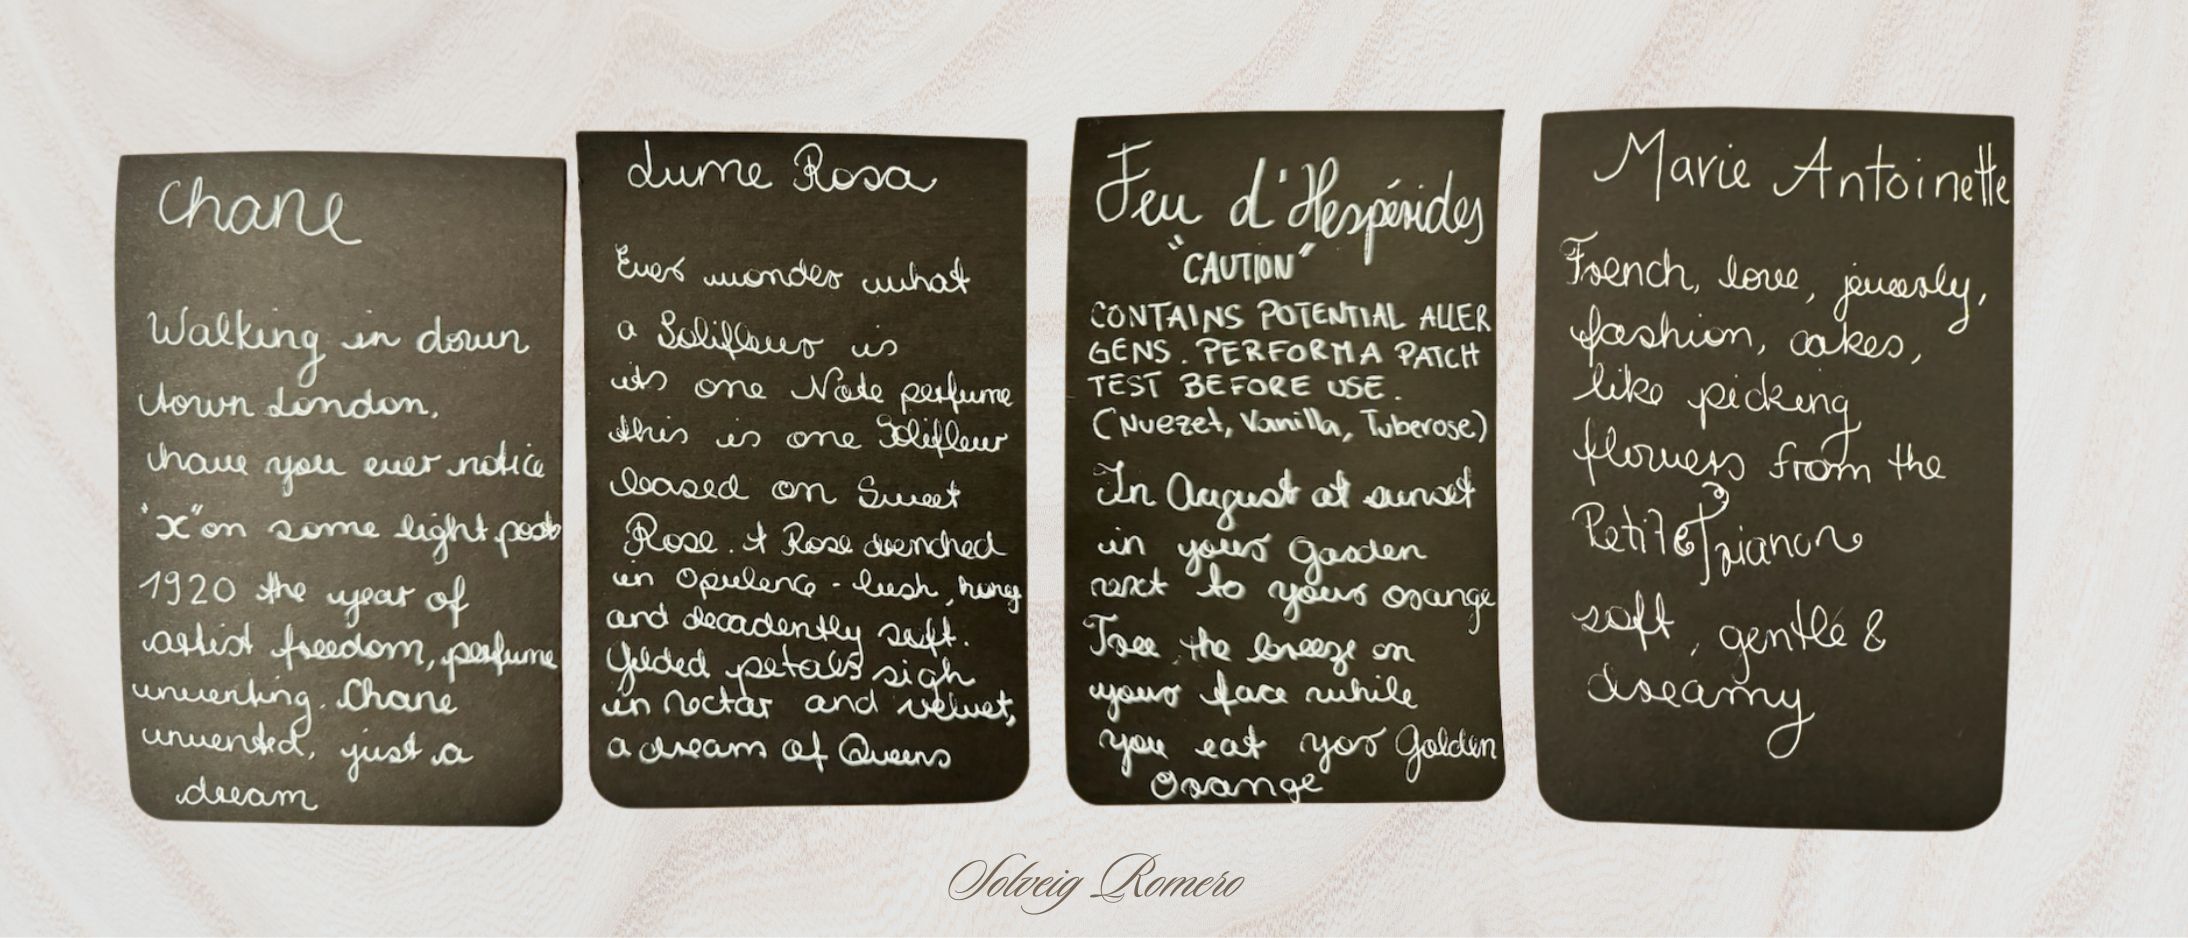 Chane
Walking in down
town London,
have you ever notice
"x" on some light post
1920 the year of
artist freedom, perfume
inventing. Chane
invented, just a
dream
Lume Rosa
Ever wonder what
a Solifleur is
its one Note perfume
this is one Solifleur
based on Sweet
Rose. A Rose drenched
in Opulence - lush,
and decadently soft.
Gilded petals sigh
in nectar and velvet,
a dream of Queens
Feu d'Hespérides
"CAUTION"
CONTAINS POTENTIAL ALLER
GENS. PERFORM A PATCH
TEST BEFORE USE.
(Nuezet, Vanilla, Tuberose)
In August at sunset
in your Garden
next to your orange
Tree, the breeze on
your face while
you eat yor Golden
Orange
Marie Antoinette
French, love, jewerly,
fashion, cakes,
like picking
flowers from the
Petite Trianon
soft, gentle &
dreamy
Solveig Romero